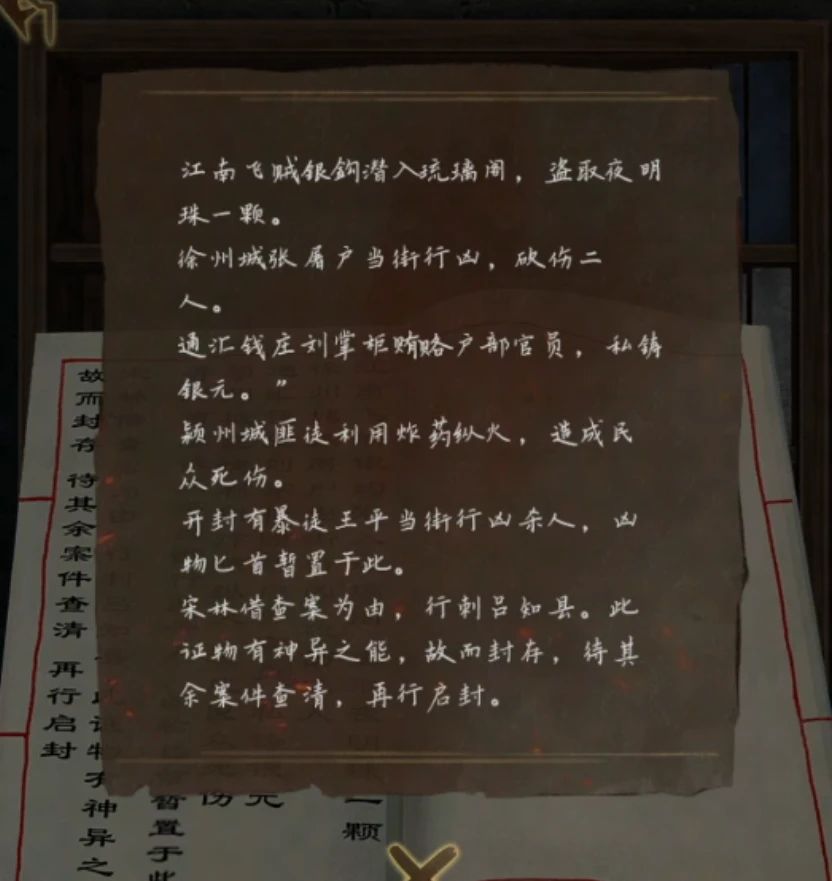 江南飞贼银鈎潜入琉璃阁，盗取夜明
珠一颗。
徐州城张屠户当街行凶，砍伤二
人。
通汇钱庄刘掌柜贿赂户部官员，私铸
银元。”
颍州城匪徒利用炸药纵火，造成民
众死伤。
开封有暴徒王平当街行凶杀人，凶
物匕首暂置于此。
宋林借查案为由，行刺吕知县。此
证物有神异之能，故而封存，待其
余案件查清，再行启封。
一颗
元
伤
暂置于此
证物有神异之
故而封存 待其余案件查清 再行启封